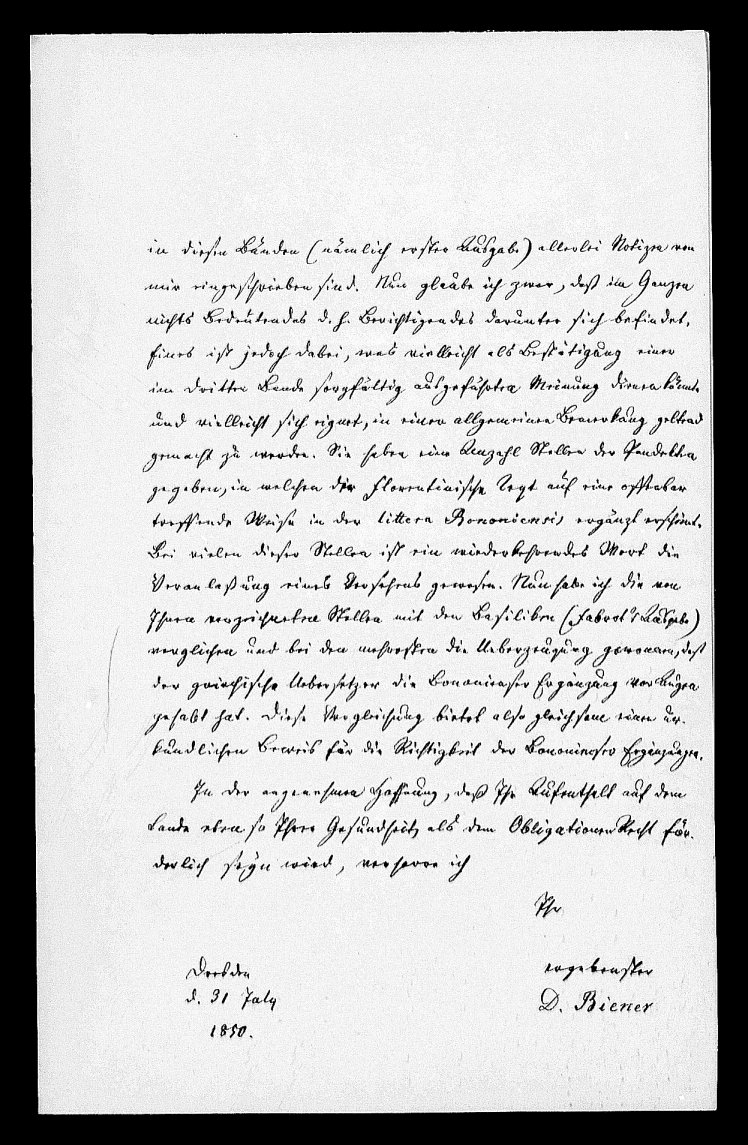 in diesen Bänden (nämlich erster Ausgabe) allerlei Notizen von
mir eingeschrieben sind. Nun glaube ich zwar, daß im Ganzen
nichts Bedeutendes d. h. Berichtigendes darunter sich befindet.
Eines ist jedoch dabei, was vielleicht als Bestätigung einer
im dritten Bande sorgfältig ausgeführten Meinung dienen könnte
und vielleicht sich eignet, in einer allgemeinen Bemerkung geltend
gemacht zu werden. Sie haben eine Anzahl Stellen der Pandekten
gegeben, in welchen der Florentinische Text auf eine offenbar
treffende Weise in der littera Bononiensis ergänzt erscheint.
Bei vielen dieser Stellen ist ein wiederkehrendes Wort die
Veranlaßung eines Versehens gewesen. Nun habe ich die von
Ihnen verzeichneten Stellen mit den Basiliken (Fabrot's Ausgabe)
verglichen und bei den mehresten die Ueberzeugung gewonnen, daß
der griechische Uebersetzer die Bononienser Ergänzung vor Augen
gehabt hat. Diese Vergleichung bietet also gleichsam einen ur-
kundlichen Beweis für die Richtigkeit der Bononienser Ergänzungen.
In der angenehmen Hoffnung, daß Ihr Aufenthalt auf dem
Lande eben so Ihrer Gesundheit, als dem Obligationen Recht för-
derlich seyn wird, verharre ich
Ihr
ergebenster
D. Biener
Dresden
d. 31 July
1850.